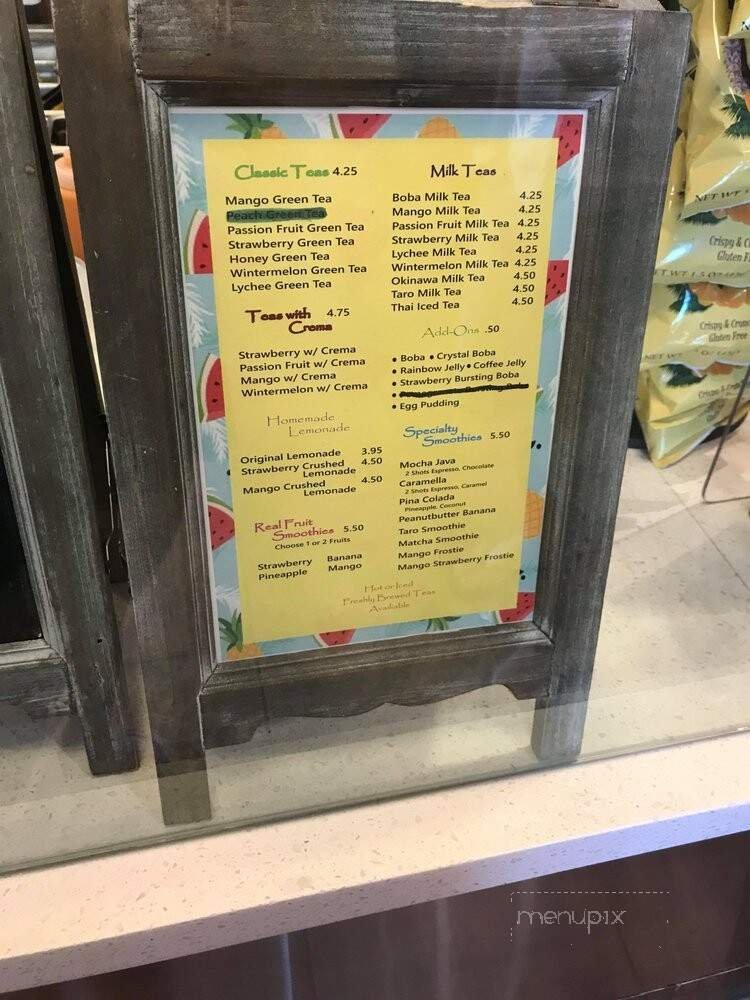 Classic Teas 4.25
Mango Green Tea
Peach Green Tea
Passion Fruit Green Tea
Strawberry Green Tea
Honey Green Tea
Wintermelon Green Tea
Lychee Green Tea
Teas with Crema 4.75
Strawberry w/ Crema
Passion Fruit w/ Crema
Mango w/ Crema
Wintermelon w/ Crema
Homemade
Lemonade
Original Lemonade 3.95
Strawberry Crushed 4.50
Lemonade
Mango Crushed 4.50
Lemonade
Real Fruit
Smoothies 5.50
Choose 1 or 2 Fruits
Strawberry Banana
Pineapple Mango
Milk Teas
Boba Milk Tea 4.25
Mango Milk Tea 4.25
Passion Fruit Milk Tea 4.25
Strawberry Milk Tea 4.25
Lychee Milk Tea 4.25
Wintermelon Milk Tea 4.25
Okinawa Milk Tea 4.50
Taro Milk Tea 4.50
Thai Iced Tea 4.50
Add-Ons .50
• Boba • Crystal Boba
• Rainbow Jelly • Coffee Jelly
• Strawberry Bursting Boba
• Bursting Boba
• Egg Pudding
Specialty
Smoothies 5.50
Mocha Java
2 Shots Espresso, Chocolate
Caramella
2 Shots Espresso, Caramel
Pina Colada
Pineapple, Coconut
Peanutbutter Banana
Taro Smoothie
Matcha Smoothie
Mango Frostie
Mango Strawberry Frostie
Hot or Iced
Freshly Brewed Teas
Available
NET WT
Crispy &
Gluten F
NET WT 1.5
Crispy & Crun
Gluten Free
menupix